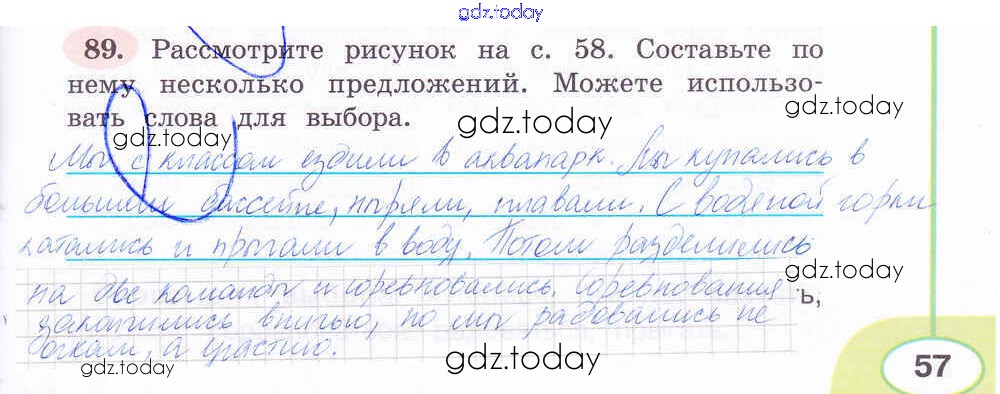 gdz.today
89. Рассмотрите рисунок на с. 58. Составьте по
нему несколько предложений. Можете использо-
вать слова для выбора.
gdz.today
gdz.today
gdz.today
Мы с классом ездили в аквапарк. Мы купались в
большом бассейне, ныряли, плавали. С водяной горки
катались и прыгали в воду. Потом разделились
gdz.today
на две команды и соревновались. Соревнования
ь,
закончились вничью, но мы радовались не
очкам, а участию.
gdz.today
gdz.today
57